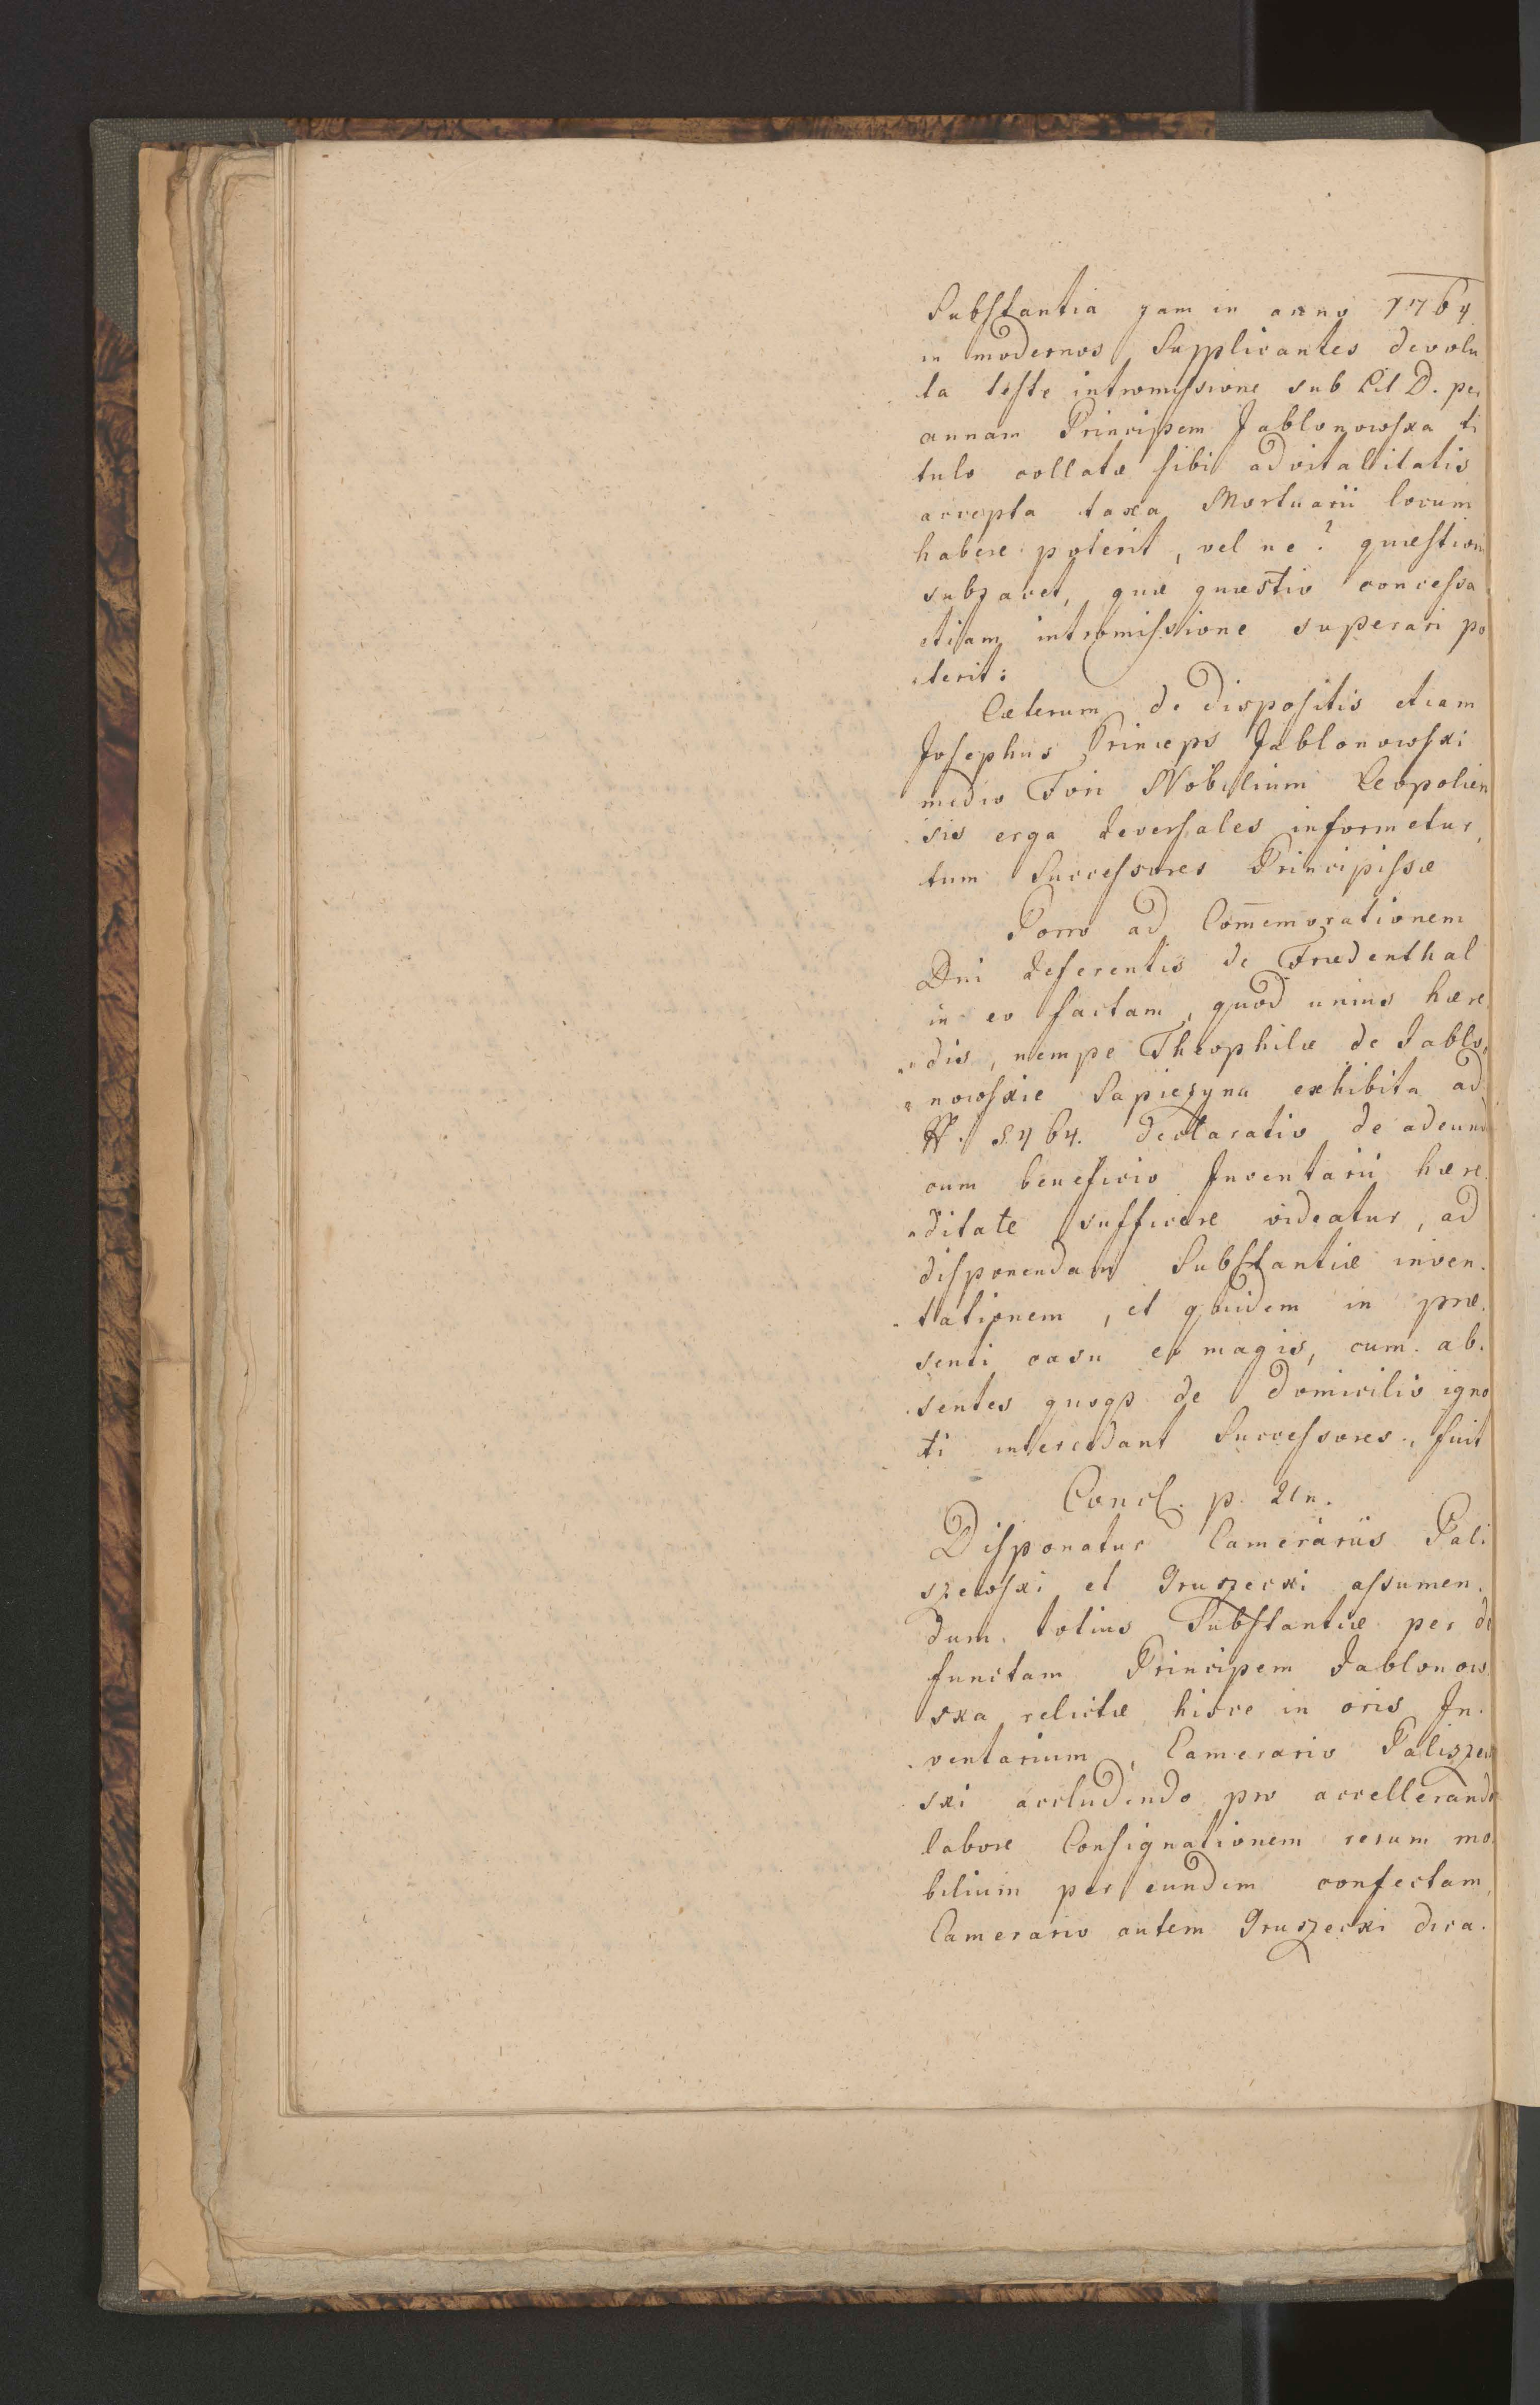 Substantia jam in anno 1764
in modernos Supplicantes devolu
ta teste intromissione sub Lit D. per
annam Principem Jablonowska ti
tulo collatæ sibi advitalitatis
accepta taxa Mortuarii locum
habere poterit, vel ne? quæstioni
subjacet, quæ quæstio concessa
etiam intromissione superari po
terit:
Cæterum de dispositis etiam
Josephus Princeps Jablonowski
medio Fori Nobilium Leopolien
sis erga reversales informetur,
tum Successores Principissæ
Porro ad Com̄emorationem
Dni Referentis de Fredenthal
in eo factam, quod unius hære
dis, nempe Theophilæ de Jablo,
nowskie Sapiezyna exhibita ad
N. 5464. declaratio de adeunda
cum beneficio Inventarii hære.
ditate sufficere videatur, ad
disponendam Substantiæ inven.
tationem, et quidem in præ.
senti casu eo magis, cum ab.
sentes quoqȝ de domicilio igno
ti intercedant Successores, fuit
Concl. p. Un.
Disponatur Camerariis Pali
szewski et Gruszecki assumen.
dum totius Substantiæ per de
functam Principem Jablonow
ska relictæ hisce in oris In.
ventarium, Camerario Paliszew
ski accludendo pro accellerando
labore Consignationem rerum mo.
bilium per eundem confectam,
Camerario autem Gruszecki dica.